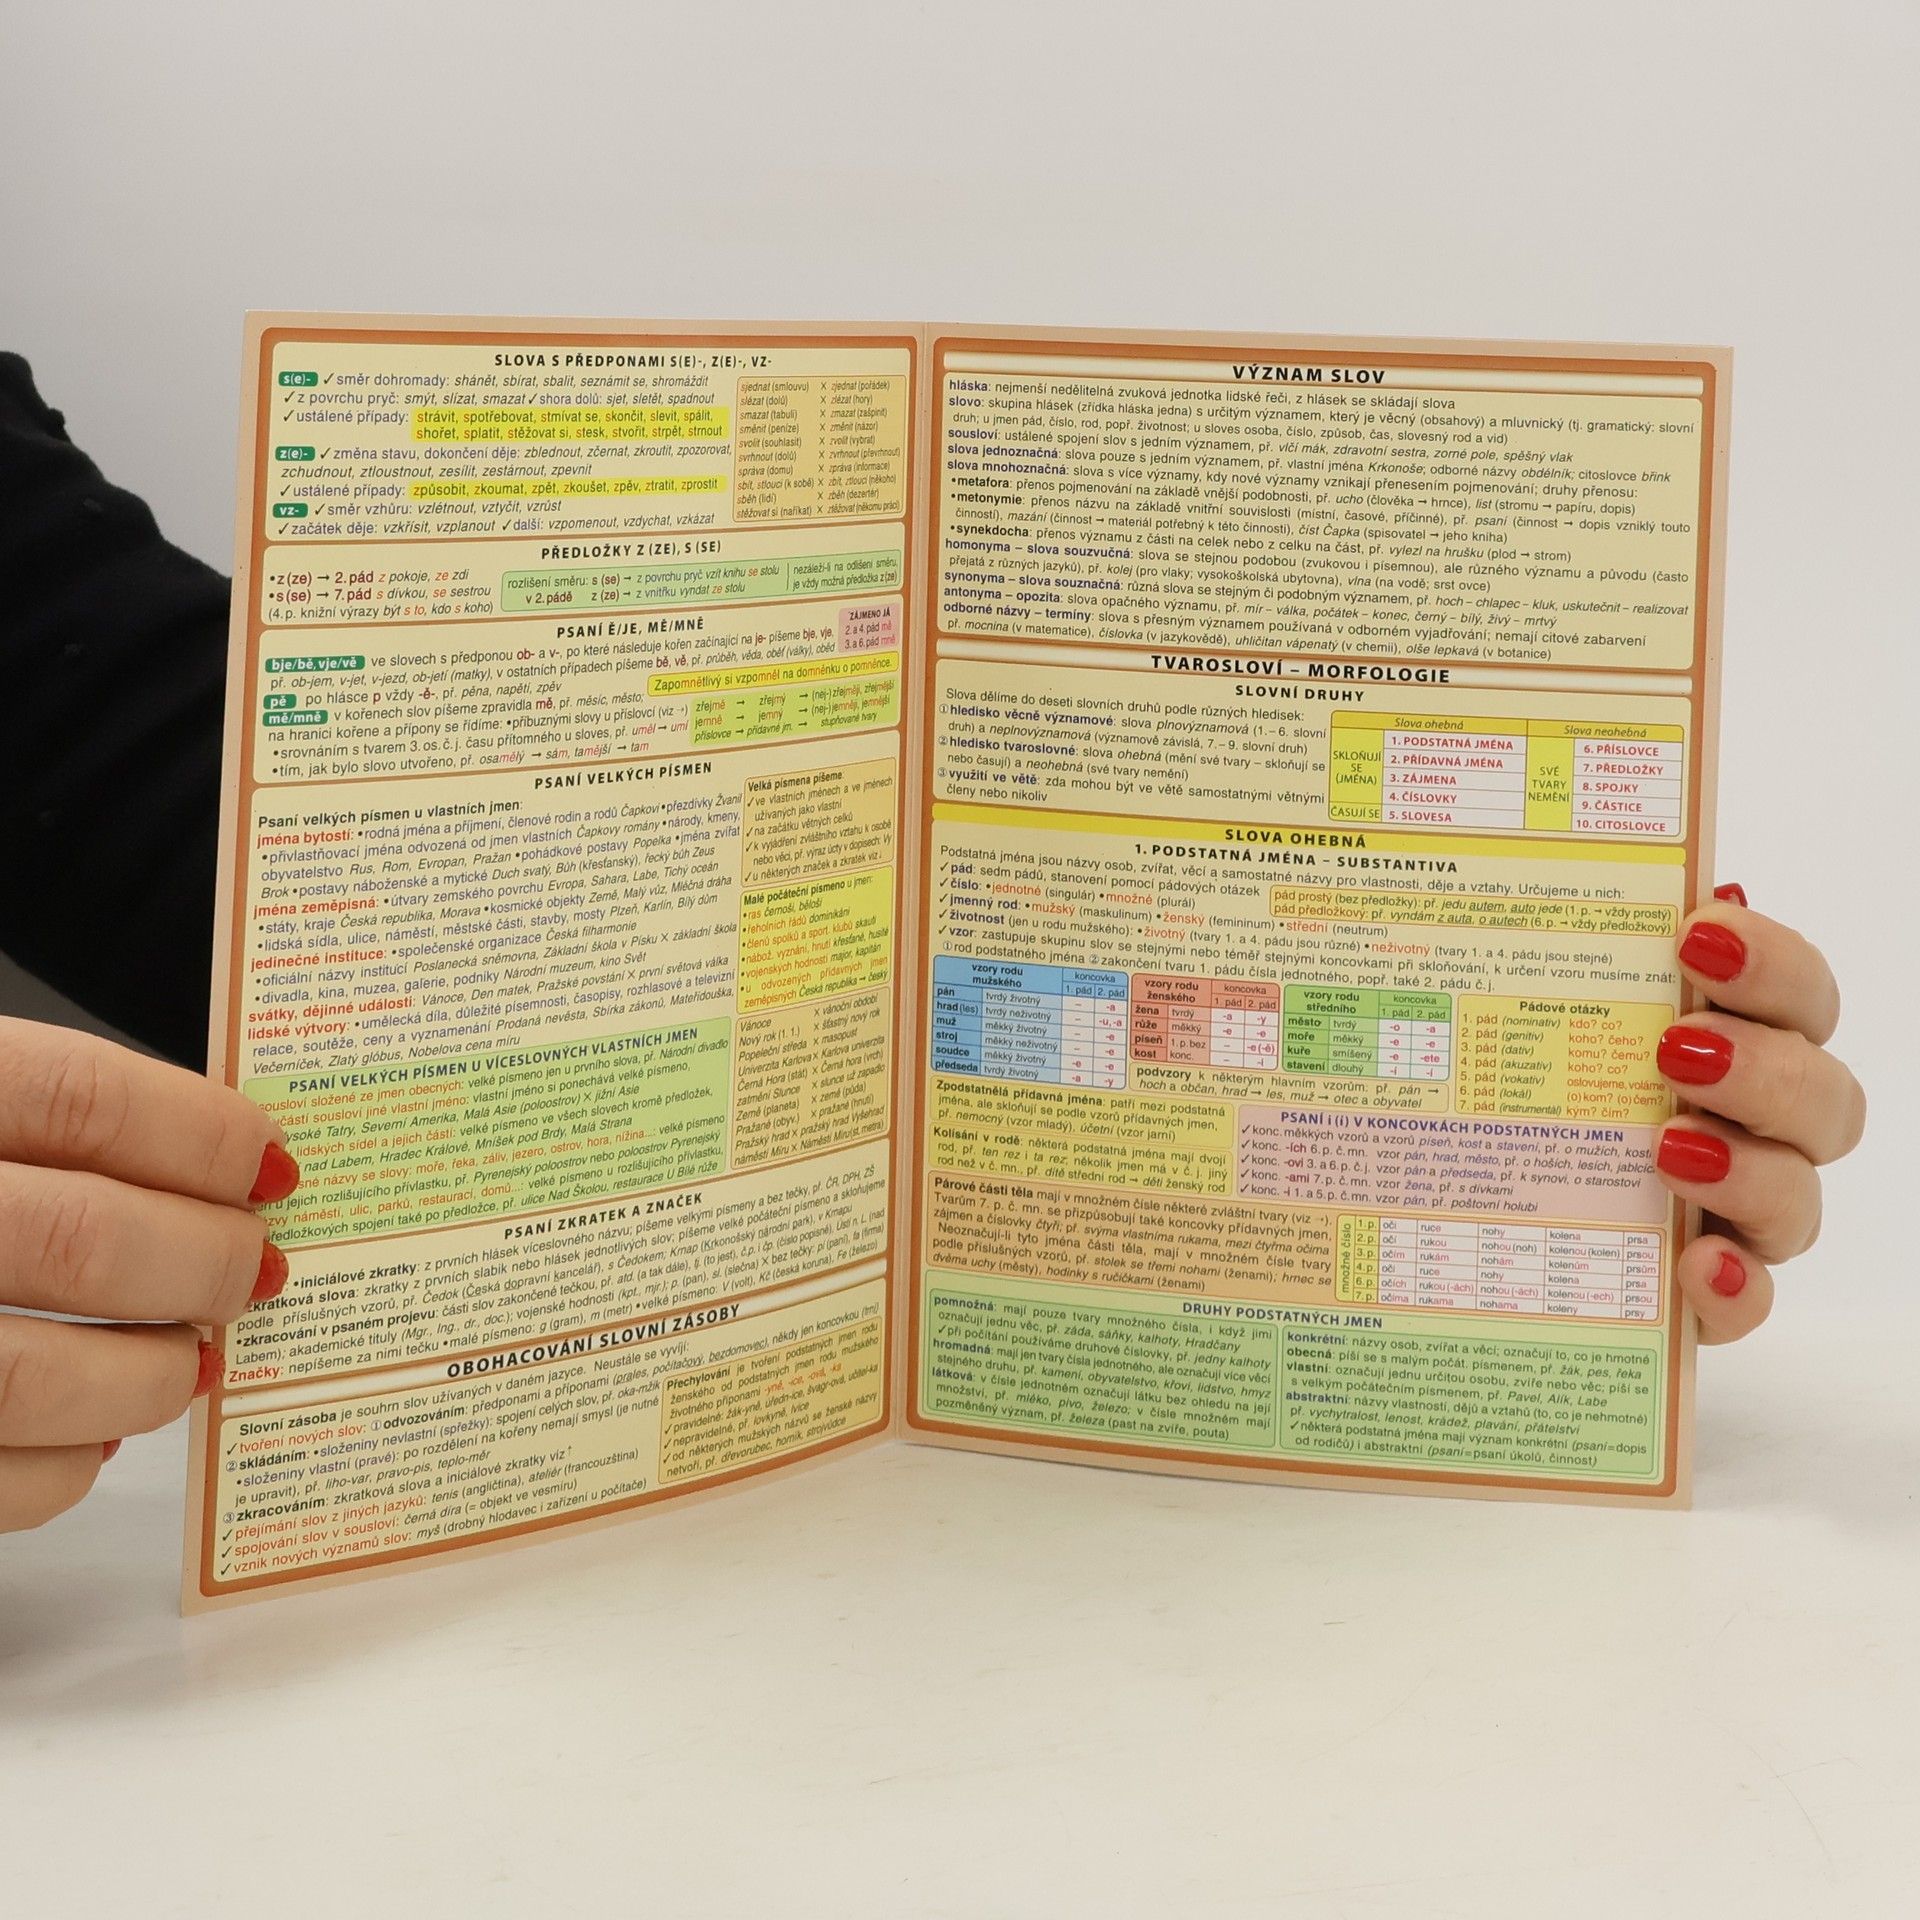 SLOVA S PŘEDPONAMI S(E)-, Z(E)-, VZ-
s(e)- ✓směr dohromady: shánět, sbírat, sbalit, seznámit se, shromáždit
✓z povrchu pryč: smýt, slízat, smazat ✓shora dolů: sjet, sletět, spadnout
✓ustálené případy: strávit, spotřebovat, stmívat se, skončit, slevit, spálit,
shořet, splatit, stěžovat si, stesk, stvořit, strpět, strnout
z(e)- ✓změna stavu, dokončení děje: zblednout, zčernat, zkroutit, zpozorovat,
zchudnout, ztloustnout, zesílit, zestárnout, zpevnit
✓ustálené případy: způsobit, zkoumat, zpět, zkoušet, zpěv, ztratit, zprostit
vz- ✓směr vzhůru: vzlétnout, vztyčit, vzrůst
✓začátek děje: vzkřísit, vzplanout ✓další: vzpomenout, vzdychat, vzkázat
sjednat (smlouvu) X zjednat (pořádek)
slézat (dolů) X zlézat (hory)
smazat (tabuli) X zmazat (zašpinit)
směnit (peníze) X změnit (názor)
svolit (souhlasit) X zvolit (vybrat)
svrhnout (dolů) X zvrhnout (převrhnout)
správa (domu) X zpráva (informace)
sbít, stlouci (k sobě) X zbít, ztlouci (někoho)
sběh (lidí) X zběh (dezertér)
stěžovat si (naříkat) X ztěžovat (někomu práci)
PŘEDLOŽKY Z (ZE), S (SE)
•z (ze) → 2. pád z pokoje, ze zdi
•s (se) → 7. pád s dívkou, se sestrou
(4. p. knižní výrazy být s to, kdo s koho)
rozlišení směru: s (se) → z povrchu pryč vzít knihu se stolu
v 2. pádě z (ze) → z vnitřku vyndat ze stolu
nezáleží-li na odlišení směru,
je vždy možná předložka z (ze)
PSANÍ Ě/JE, MĚ/MNĚ
ZÁJMENO JÁ
2. a 4. pád mě
3. a 6. pád mně
bje/bě, vje/vě ve slovech s předponou ob- a v-, po které následuje kořen začínající na je- píšeme bje, vje,
př. ob-jem, v-jet, v-jezd, ob-jetí (matky), v ostatních případech píšeme bě, vě, př. průběh, věda, oběť (války), oběd
pě po hlásce p vždy -ě-, př. pěna, napětí, zpěv
Zapomnětlivý si vzpomněl na domněnku o pomněnce.
mě/mně v kořenech slov píšeme zpravidla mě, př. měsíc, město;
na hranici kořene a přípony se řídíme: •příbuznými slovy u příslovcí (viz →)
•srovnáním s tvarem 3. os. č. j. času přítomného u sloves, př. uměl → umí
•tím, jak bylo slovo utvořeno, př. osamělý → sám, tamější → tam
zřejmě → zřejmý → (nej-)zřejměji, zřejmější
jemně → jemný → (nej-)jemněji, jemnější
příslovce → přídavné jm. → stupňované tvary
PSANÍ VELKÝCH PÍSMEN
Psaní velkých písmen u vlastních jmen:
jména bytostí: •rodná jména a příjmení, členové rodin a rodů Čapkovi •přezdívky Žvanil
•přivlastňovací jména odvozená od jmen vlastních Čapkovy romány •národy, kmeny,
obyvatelstvo Rus, Rom, Evropan, Pražan •pohádkové postavy Popelka •jména zvířat
Brok •postavy náboženské a mytické Duch svatý, Bůh (křesťanský), řecký bůh Zeus
jména zeměpisná: •útvary zemského povrchu Evropa, Sahara, Labe, Tichý oceán
•státy, kraje Česká republika, Morava •kosmické objekty Země, Malý vůz, Mléčná dráha
•lidská sídla, ulice, náměstí, městské části, stavby, mosty Plzeň, Karlín, Bílý dům
jedinečné instituce: •společenské organizace Česká filharmonie
•oficiální názvy institucí Poslanecká sněmovna, Základní škola v Písku X základní škola
•divadla, kina, muzea, galerie, podniky Národní muzeum, kino Svět
svátky, dějinné události: Vánoce, Den matek, Pražské povstání X první světová válka
lidské výtvory: •umělecká díla, důležité písemnosti, časopisy, rozhlasové a televizní
relace, soutěže, ceny a vyznamenání Prodaná nevěsta, Sbírka zákonů, Mateřídouška,
Večerníček, Zlatý glóbus, Nobelova cena míru
Velká písmena píšeme:
✓ve vlastních jménech a ve jménech
užívaných jako vlastní
✓na začátku větných celků
✓k vyjádření zvláštního vztahu k osobě
nebo věci, př. výraz úcty v dopisech: Vy
✓u některých značek a zkratek viz ↓
Malé počáteční písmeno u jmen:
•ras černoši, běloši
•řeholních řádů dominikáni
•členů spolků a sport. klubů skauti
•nábož. vyznání, hnutí křesťané, husité
•vojenských hodností major, kapitán
•u odvozených přídavných jmen
zeměpisných Česká republika → český
Vánoce X vánoční období
Nový rok (1. 1.) X šťastný nový rok
Popeleční středa X masopust
Univerzita Karlova X Karlova univerzita
Černá Hora (stát) X Černá hora (vrch)
zatmění Slunce X slunce už zapadlo
Země (planeta) X země (půda)
Pražané (obyv.) X pražané (hnutí)
Pražský hrad X pražský hrad Vyšehrad
náměstí Míru X Náměstí Míru (st. metra)
PSANÍ VELKÝCH PÍSMEN U VÍCESLOVNÝCH VLASTNÍCH JMEN
sousloví složené ze jmen obecných: velké písmeno jen u prvního slova, př. Národní divadlo
částí sousloví jiné vlastní jméno: vlastní jméno si ponechává velké písmeno,
Vysoké Tatry, Severní Amerika, Malá Asie (poloostrov) X jižní Asie
lidských sídel a jejich částí: velké písmeno ve všech slovech kromě předložek,
nad Labem, Hradec Králové, Mníšek pod Brdy, Malá Strana
názvy se slovy: moře, řeka, záliv, jezero, ostrov, hora, nížina...: velké písmeno
u jejich rozlišujícího přívlastku, př. Pyrenejský poloostrov nebo poloostrov Pyrenejský
náměstí, ulic, parků, restaurací, domů...: velké písmeno u rozlišujícího přívlastku,
předložkových spojení také po předložce, př. ulice Nad Školou, restaurace U Bílé růže
PSANÍ ZKRATEK A ZNAČEK
•iniciálové zkratky: z prvních hlásek víceslovného názvu; píšeme velkými písmeny a bez tečky, př. ČR, DPH, ZŠ
zkratková slova: zkratky z prvních slabik nebo hlásek jednotlivých slov; píšeme velké počáteční písmeno a skloňujeme
podle příslušných vzorů, př. Čedok (Česká dopravní kancelář), s Čedokem; Krnap (Krkonošský národní park), v Krnapu
•zkracování v psaném projevu: části slov zakončené tečkou, př. atd. (a tak dále), tj. (to jest), č.p. i čp. (číslo popisné), Ústí n. L. (nad
Labem); akademické tituly (Mgr., Ing., dr., doc.); vojenské hodnosti (kpt., mjr.); p. (pan), sl. (slečna) X bez tečky: pí (paní), fa (firma)
Značky: nepíšeme za nimi tečku •malé písmeno: g (gram), m (metr) •velké písmeno: V (volt), Kč (česká koruna), Fe (železo)
OBOHACOVÁNÍ SLOVNÍ ZÁSOBY
Slovní zásoba je souhrn slov užívaných v daném jazyce. Neustále se vyvíjí:
✓tvoření nových slov: ①odvozováním: předponami a příponami (prales, počítačový, bezdomovec), někdy jen koncovkou (trní)
②skládáním: •složeniny nevlastní (spřežky): spojení celých slov, př. oka-mžik
•složeniny vlastní (pravé): po rozdělení na kořeny nemají smysl (je nutné
je upravit), př. liho-var, pravo-pis, teplo-měr
③zkracováním: zkratková slova a iniciálové zkratky viz ↑
✓přejímání slov z jiných jazyků: tenis (angličtina), ateliér (francouzština)
✓spojování slov v sousloví: černá díra (= objekt ve vesmíru)
✓vznik nových významů slov: myš (drobný hlodavec i zařízení u počítače)
Přechylování je tvoření podstatných jmen rodu
ženského od podstatných jmen rodu mužského
životného příponami -yně, -ice, -ová, -ka
✓pravidelné: žák-yně, úředn-ice, švagr-ová, učitel-ka
✓nepravidelné, př. lovkyně, lvice
✓od některých mužských názvů se ženské názvy
netvoří, př. dřevorubec, horník, strojvůdce
VÝZNAM SLOV
hláska: nejmenší nedělitelná zvuková jednotka lidské řeči, z hlásek se skládají slova
slovo: skupina hlásek (zřídka hláska jedna) s určitým významem, který je věcný (obsahový) a mluvnický (tj. gramatický: slovní
druh; u jmen pád, číslo, rod, popř. životnost; u sloves osoba, číslo, způsob, čas, slovesný rod a vid)
sousloví: ustálené spojení slov s jedním významem, př. vlčí mák, zdravotní sestra, zorné pole, spěšný vlak
slova jednoznačná: slova pouze s jedním významem, př. vlastní jména Krkonoše; odborné názvy obdélník; citoslovce břink
slova mnohoznačná: slova s více významy, kdy nové významy vznikají přenesením pojmenování; druhy přenosu:
•metafora: přenos pojmenování na základě vnější podobnosti, př. ucho (člověka → hrnce), list (stromu → papíru, dopis)
•metonymie: přenos názvu na základě vnitřní souvislosti (místní, časové, příčinné), př. psaní (činnost → dopis vzniklý touto
činností), mazání (činnost → materiál potřebný k této činnosti), číst Čapka (spisovatel → jeho kniha)
•synekdocha: přenos významu z části na celek nebo z celku na část, př. vylezl na hrušku (plod → strom)
homonyma – slova souzvučná: slova se stejnou podobou (zvukovou i písemnou), ale různého významu a původu (často
přejatá z různých jazyků), př. kolej (pro vlaky; vysokoškolská ubytovna), vlna (na vodě; srst ovce)
synonyma – slova souznačná: různá slova se stejným či podobným významem, př. hoch – chlapec – kluk, uskutečnit – realizovat
antonyma – opozita: slova opačného významu, př. mír – válka, počátek – konec, černý – bílý, živý – mrtvý
odborné názvy – termíny: slova s přesným významem používaná v odborném vyjadřování; nemají citové zabarvení
př. mocnina (v matematice), číslovka (v jazykovědě), uhličitan vápenatý (v chemii), olše lepkavá (v botanice)
TVAROSLOVÍ – MORFOLOGIE
SLOVNÍ DRUHY
Slova dělíme do deseti slovních druhů podle různých hledisek:
①hledisko věcně významové: slova plnovýznamová (1. – 6. slovní
druh) a neplnovýznamová (významově závislá, 7. – 9. slovní druh)
②hledisko tvaroslovné: slova ohebná (mění své tvary – skloňují se
nebo časují) a neohebná (své tvary nemění)
③využití ve větě: zda mohou být ve větě samostatnými větnými
členy nebo nikoliv
Slova ohebná Slova neohebná
SKLOŇUJÍ SE (JMÉNA) 1. PODSTATNÁ JMÉNA
2. PŘÍDAVNÁ JMÉNA
3. ZÁJMENA
4. ČÍSLOVKY
ČASUJÍ SE 5. SLOVESA
SVÉ TVARY NEMĚNÍ 6. PŘÍSLOVCE
7. PŘEDLOŽKY
8. SPOJKY
9. ČÁSTICE
10. CITOSLOVCE
SLOVA OHEBNÁ
1. PODSTATNÁ JMÉNA – SUBSTANTIVA
Podstatná jména jsou názvy osob, zvířat, věcí a samostatné názvy pro vlastnosti, děje a vztahy. Určujeme u nich:
✓pád: sedm pádů, stanovení pomocí pádových otázek
✓číslo: •jednotné (singulár) •množné (plurál)
pád prostý (bez předložky): př. jedu autem, auto jede (1. p. → vždy prostý)
pád předložkový: př. vyndám z auta, o autech (6. p. → vždy předložkový)
✓jmenný rod: •mužský (maskulinum) •ženský (femininum) •střední (neutrum)
✓životnost (jen u rodu mužského): •životný (tvary 1. a 4. pádu jsou různé) •neživotný (tvary 1. a 4. pádu jsou stejné)
✓vzor: zastupuje skupinu slov se stejnými nebo téměř stejnými koncovkami při skloňování, k určení vzoru musíme znát:
①rod podstatného jména ②zakončení tvaru 1. pádu čísla jednotného, popř. také 2. pádu č. j.
vzory rodu mužského koncovka
1. pád 2. pád
pán tvrdý životný – -a
hrad (les) tvrdý neživotný – -u,-a
muž měkký životný – -e
stroj měkký neživotný – -e
soudce měkký životný -e -e
předseda tvrdý životný -a -y
vzory rodu ženského koncovka
1. pád 2. pád
žena tvrdý -a -y
růže měkký -e -e
píseň 1. p. bez – -e (-ě)
kost konc. – -i
vzory rodu středního koncovka
1. pád 2. pád
město tvrdý -o -a
moře měkký -e -e
kuře smíšený -e -ete
stavení dlouhý -í -í
Pádové otázky
1. pád (nominativ) kdo? co?
2. pád (genitiv) koho? čeho?
3. pád (dativ) komu? čemu?
4. pád (akuzativ) koho? co?
5. pád (vokativ) oslovujeme, voláme
6. pád (lokál) (o) kom? (o) čem?
7. pád (instrumentál) kým? čím?
podvzory k některým hlavním vzorům: př. pán →
hoch a občan, hrad → les, muž → otec a obyvatel
Zpodstatnělá přídavná jména: patří mezi podstatná
jména, ale skloňují se podle vzorů přídavných jmen,
př. nemocný (vzor mladý), účetní (vzor jarní)
Kolísání v rodě: některá podstatná jména mají dvojí
rod, př. ten rez i ta rez; několik jmen má v č. j. jiný
rod než v č. mn., př. dítě střední rod → děti ženský rod
PSANÍ i (í) V KONCOVKÁCH PODSTATNÝCH JMEN
✓konc. měkkých vzorů a vzorů píseň, kost a stavení, př. o mužích, kosti
✓konc. -ích 6. p. č. mn. vzor pán, hrad, město, př. o hoších, lesích, jablcích
✓konc. -ovi 3. a 6. p. č. j. vzor pán a předseda, př. k synovi, o starostovi
✓konc. -ami 7. p. č. mn. vzor žena, př. s dívkami
✓konc. -i 1. a 5. p. č. mn. vzor pán, př. poštovní holubi
Párové části těla mají v množném čísle některé zvláštní tvary (viz →).
Tvarům 7. p. č. mn. se přizpůsobují také koncovky přídavných jmen,
zájmen a číslovky čtyři; př. svýma vlastníma rukama, mezi čtyřma očima
Neoznačují-li tyto jména části těla, mají v množném čísle tvary
podle příslušných vzorů, př. stolek se třemi nohami (ženami); hrnec se
dvěma uchy (městy), hodinky s ručičkami (ženami)
množné číslo
1. p. oči ruce nohy kolena prsa
2. p. očí rukou nohou (noh) kolenou (kolen) prsou
3. p. očím rukám nohám kolenům prsům
4. p. oči ruce nohy kolena prsa
6. p. očích rukou (-ách) nohou (-ách) kolenou (-ech) prsou
7. p. očima rukama nohama koleny prsy
DRUHY PODSTATNÝCH JMEN
pomnožná: mají pouze tvary množného čísla, i když jimi
označují jednu věc, př. záda, sáňky, kalhoty, Hradčany
✓při počítání používáme druhové číslovky, př. jedny kalhoty
hromadná: mají jen tvary čísla jednotného, ale označují více věcí
stejného druhu, př. kamení, obyvatelstvo, křoví, lidstvo, hmyz
látková: v čísle jednotném označují látku bez ohledu na její
množství, př. mléko, pivo, železo; v čísle množném mají
pozměněný význam, př. železa (past na zvíře, pouta)
konkrétní: názvy osob, zvířat a věcí; označují to, co je hmotné
obecná: píší se s malým počát. písmenem, př. žák, pes, řeka
vlastní: označují jednu určitou osobu, zvíře nebo věc; píší se
s velkým počátečním písmenem, př. Pavel, Alík, Labe
abstraktní: názvy vlastností, dějů a vztahů (to, co je nehmotné)
př. vychytralost, lenost, krádež, plavání, přátelství
✓některá podstatná jména mají význam konkrétní (psaní=dopis
od rodičů) i abstraktní (psaní=psaní úkolů, činnost)